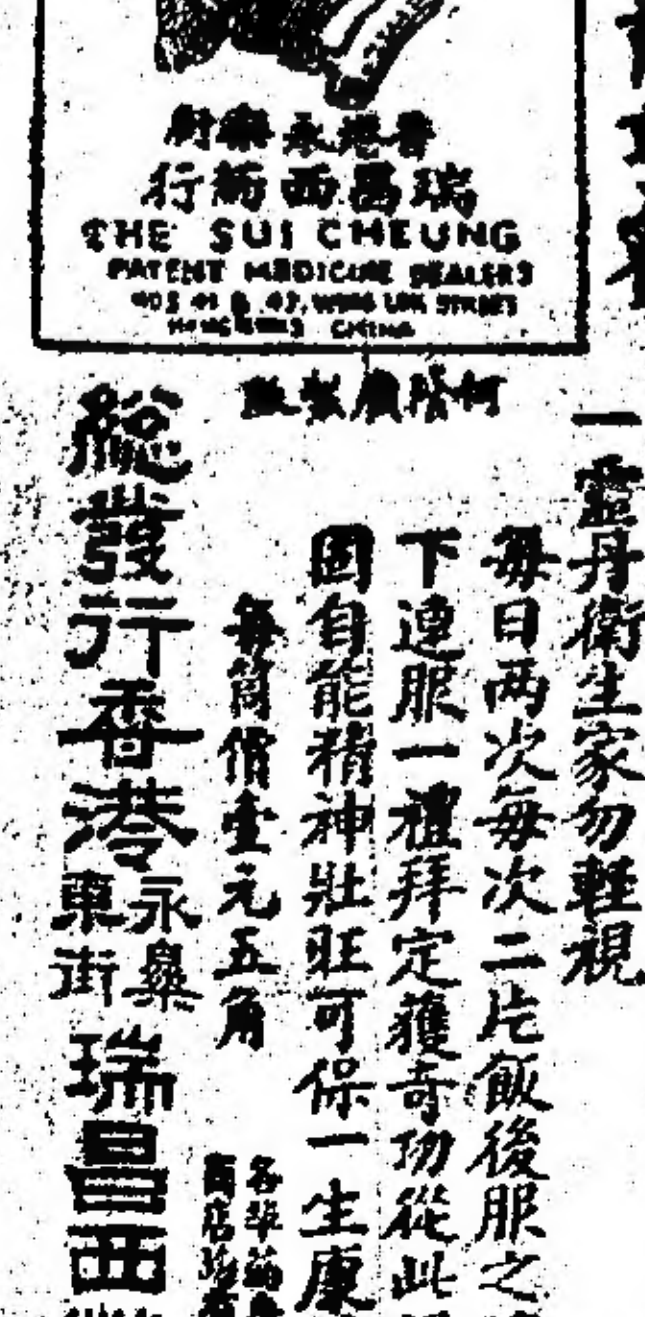 香港永樂
瑞昌西葯行
THE SUI CHEUNG
PATENT MEDICINE DEALERS
WING LOK STREET
HONG KONG CHINA
一靈丹衛生家勿輕視
每日两次每次二片飯後服之
下連服一禮拜定獲奇功從此
固自能精神壯旺可保一生康
每筒價壹元五角
各埠葯
商店均有
總發行香港永樂東街瑞昌西